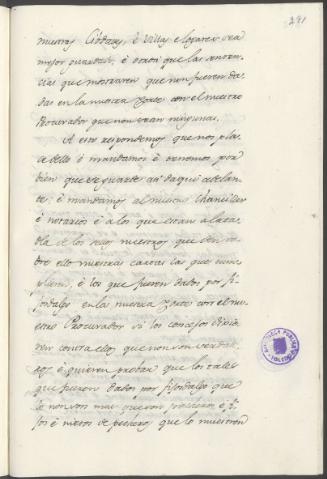 291
nuestras Cibdades, è Villas è logares sea
mejor guardado, è otrosi que las senten-
cias que mostraren que non fueren da-
das en la nuestra Corte con el nuestro
Procurador que non vean ningunas.
A esto respondemos que nos pla-
ce dello è mandamos è tenemos por
bien que se guarde asi daqui adelan-
te; è mandamos al nuestro Chanciller
è notarios è à los que estan à la ta-
bla de los sellos nuestros que den so-
bre ello nuestras cartas las que cum-
plieren, è los que fueren dados por fi-
josdalgo en la nuestra Corte con el nu-
estro Procurador si los concejos dixie-
ren contra ellos que non son verdade-
ros è quieren probar que los tales
que fueron dados por fijosdalgo que
lo non son mas que son pecheros è fi-
jos è nietos de pecheros que lo muestren